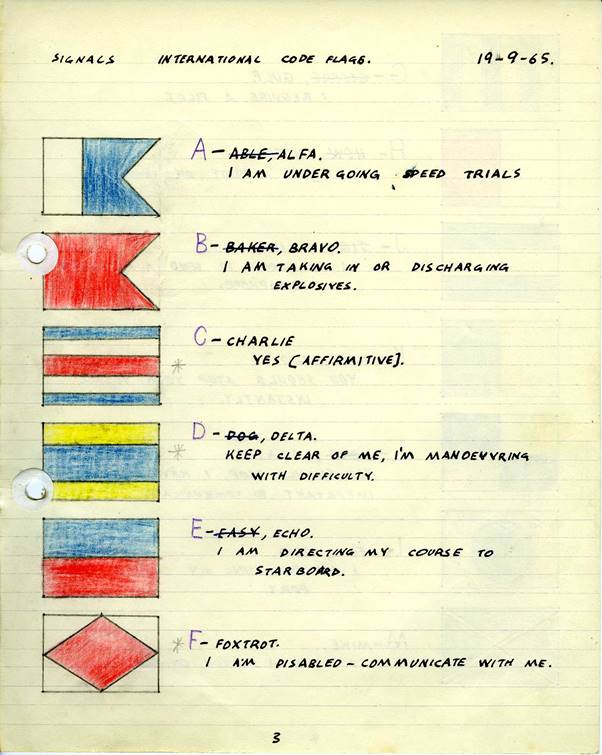 SIGNALS INTERNATIONAL CODE FLAGS. 19-9-65.
A - ABLE, ALFA.
I AM UNDERGOING SPEED TRIALS
B - BAKER, BRAVO.
I AM TAKING IN OR DISCHARGING
EXPLOSIVES.
C - CHARLIE
YES [AFFIRMITIVE].
D - DOG, DELTA.
KEEP CLEAR OF ME, I'M MANOEVVRING
WITH DIFFICULTY.
E - EASY, ECHO.
I AM DIRECTING MY COURSE TO
STARBOARD.
F - FOXTROT.
I AM DISABLED - COMMUNICATE WITH ME.
3